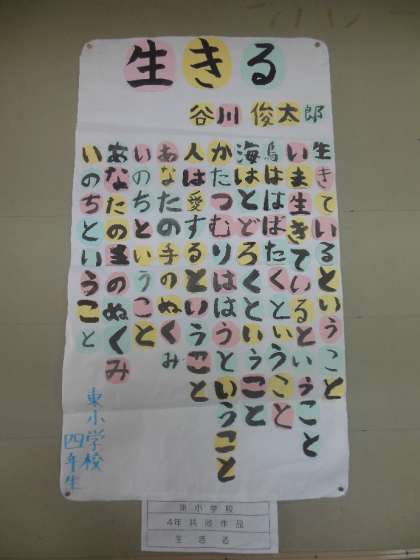 生きる
谷川 俊太郎
生きているということ
いま生きているということ
鳥ははばたくということ
海はとどろくということ
かたつむりははうということ
人は愛するということ
あなたの手のぬくみ
いのちということ
あなたの手のぬくみ
いのちということ
東小学校
四年生
東小学校
4年共同作品
生きる